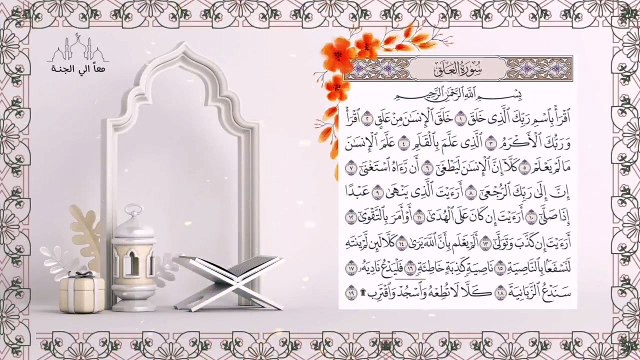 معاً الي الجنة
سُورَةُ العَلَقِ
بِسْمِ اللَّهِ الرَّحْمَٰنِ الرَّحِيمِ
ٱقْرَأْ بِٱسْمِ رَبِّكَ ٱلَّذِى خَلَقَ ١ خَلَقَ ٱلْإِنسَٰنَ مِنْ عَلَقٍ ٢ ٱقْرَأْ
وَرَبُّكَ ٱلْأَكْرَمُ ٣ ٱلَّذِى عَلَّمَ بِٱلْقَلَمِ ٤ عَلَّمَ ٱلْإِنسَٰنَ
مَا لَمْ يَعْلَمْ ٥ كَلَّآ إِنَّ ٱلْإِنسَٰنَ لَيَطْغَىٰٓ ٦ أَن رَّءَاهُ ٱسْتَغْنَىٰٓ ٧
إِنَّ إِلَىٰ رَبِّكَ ٱلرُّجْعَىٰٓ ٨ أَرَءَيْتَ ٱلَّذِى يَنْهَىٰ ٩ عَبْدًا
إِذَا صَلَّىٰٓ ١٠ أَرَءَيْتَ إِن كَانَ عَلَى ٱلْهُدَىٰٓ ١١ أَوْ أَمَرَ بِٱلتَّقْوَىٰٓ ١٢
أَرَءَيْتَ إِن كَذَّبَ وَتَوَلَّىٰٓ ١٣ أَلَمْ يَعْلَم بِأَنَّ ٱللَّهَ يَرَىٰ ١٤ كَلَّا لَئِن لَّمْ يَنتَهِ
لَنَسْفَعًۢا بِٱلنَّاصِيَةِ ١٥ نَاصِيَةٍ كَٰذِبَةٍ خَاطِئَةٍ ١٦ فَلْيَدْعُ نَادِيَهُۥ ١٧
سَنَدْعُ ٱلزَّبَانِيَةَ ١٨ كَلَّا لَا تُطِعْهُ وَٱسْجُدْ وَٱقْتَرِب ۩ ١٩